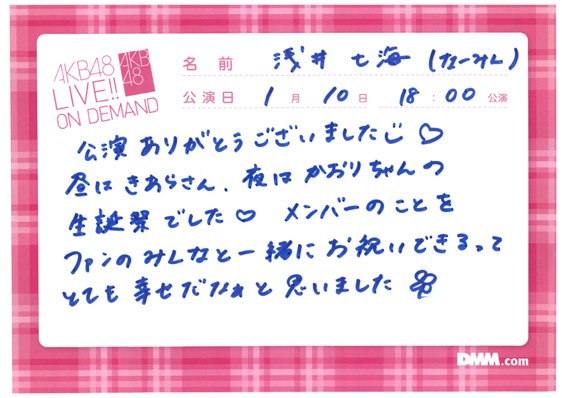 AKB48
LIVE!!
ON DEMAND
AKB
48
名前 浅井七海(なーみん)
公演日 1月10日 18:00公演
公演ありがとうございました♡
昼はきあらさん、夜はかおりちゃんの
生誕祭でした♡ メンバーのことを
ファンのみんなと一緒にお祝いできるって
とても幸せだなぁと思いました
DMM.com